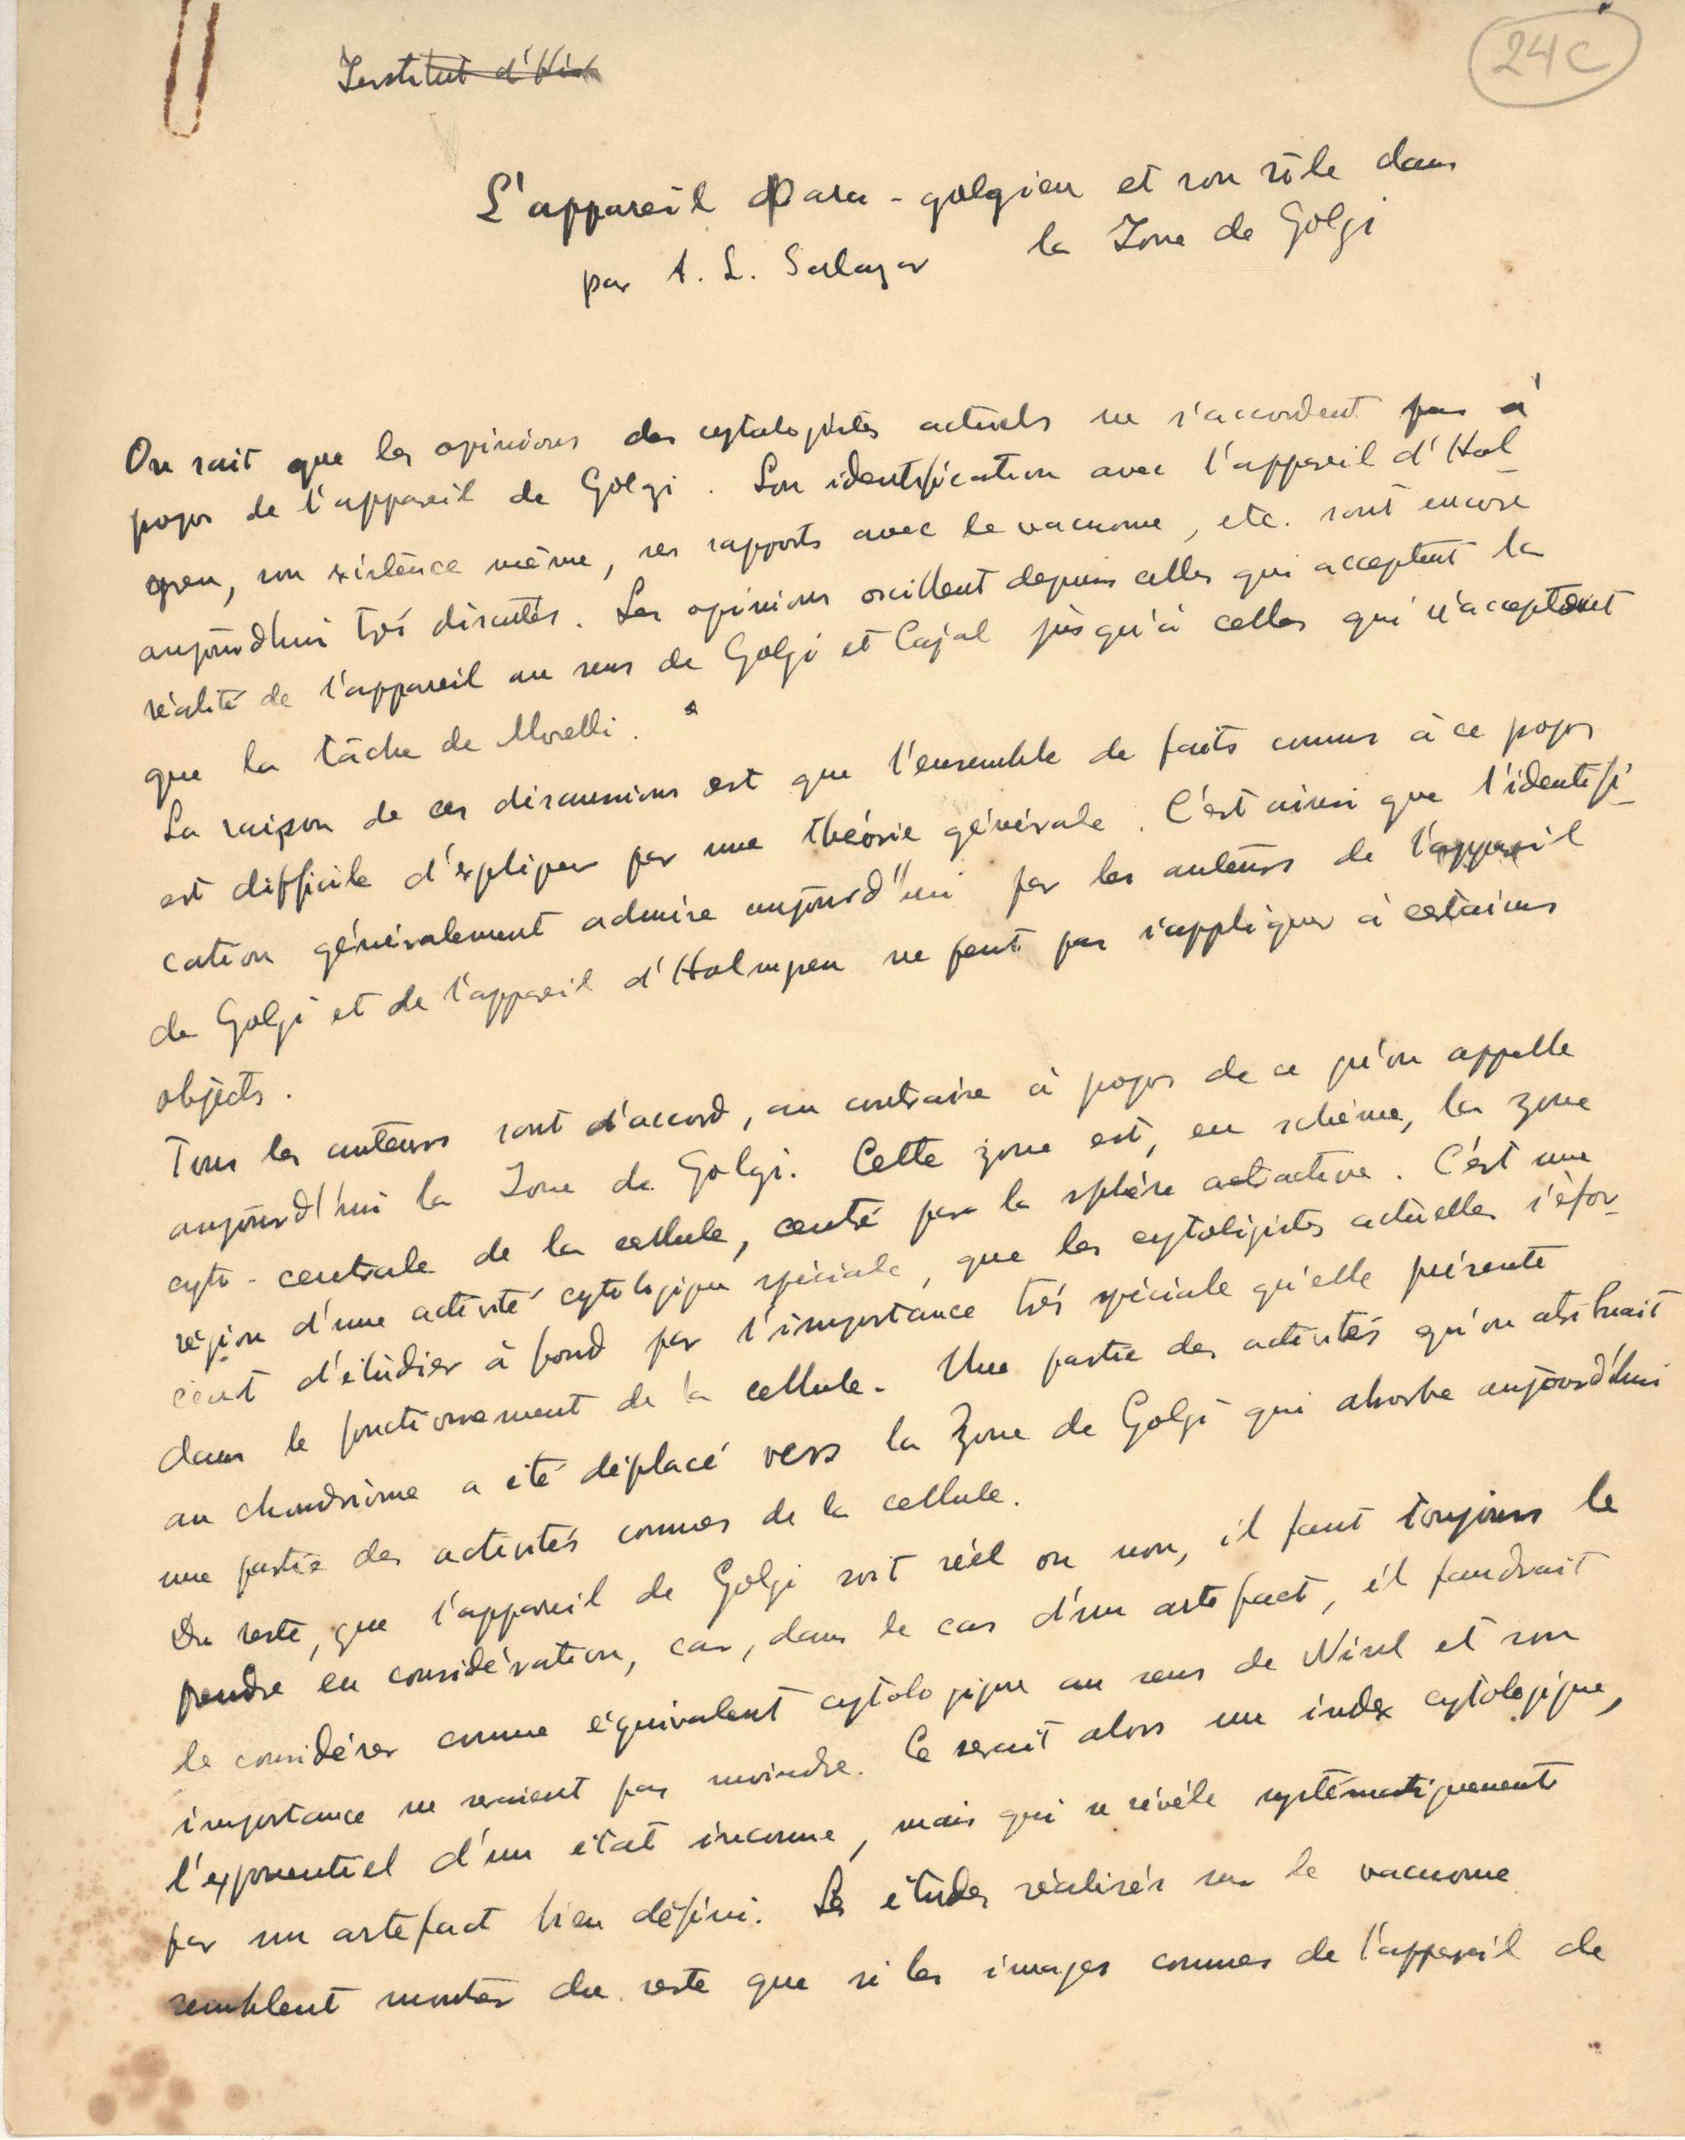 Institut d'His
24c
L'appareil Para-golgien et son rôle dans
la Zone de Golgi
par A. L. Salazar
On sait que les opinions des cytologistes actuels ne s'accordent pas à
propos de l'appareil de Golgi. Son identification avec l'appareil d'Hol-
gren, son existence même, ses rapports avec le vacuome, etc. sont encore
aujourd'hui très discutés. Les opinions oscillent depuis celles qui acceptent la
réalité de l'appareil au sens de Golgi et Cajal jusqu'à celles qui n'acceptent
que la tâche de Morelli.
La raison de ces discussions est que l'ensemble de faits connus à ce propos
est difficile d'expliquer par une théorie générale. C'est ainsi que l'identifi-
cation généralement admise aujourd'hui par les auteurs de l'appareil
de Golgi et de l'appareil d'Holmgren ne peut pas s'appliquer à certains
objects.
Tous les auteurs sont d'accord, au contraire à propos de ce qu'on appelle
aujourd'hui la Zone de Golgi. Cette zone est, en schème, la zone
cyto-centrale de la cellule, centré par la sphère attractive. C'est une
région d'une activité cytologique spéciale, que les cytologistes actuelles s'éfor-
cent d'étudier à fond par l'importance très spéciale qu'elle présente
dans le fonctionnement de la cellule. Une partie des activités qu'on atribuait
au chondriome a été déplacé vers la Zone de Golgi qui absorbe aujourd'hui
une partie des activités connues de la cellule.
Du reste, que l'appareil de Golgi soit réel ou non, il faut toujours le
prendre en considération, car, dans le cas d'un artefact, il faudrait
le considérer comme équivalent cytologique au sens de Nissl et son
importance ne seraient pas moindre. Ce serait alors un index cytologique,
l'exponentiel d'un état inconnue, mais qui se révèle systématiquement
par un artefact bien défini. Les études réalisés sur le vacuome
semblent monter du reste que si les images connues de l'appareil de